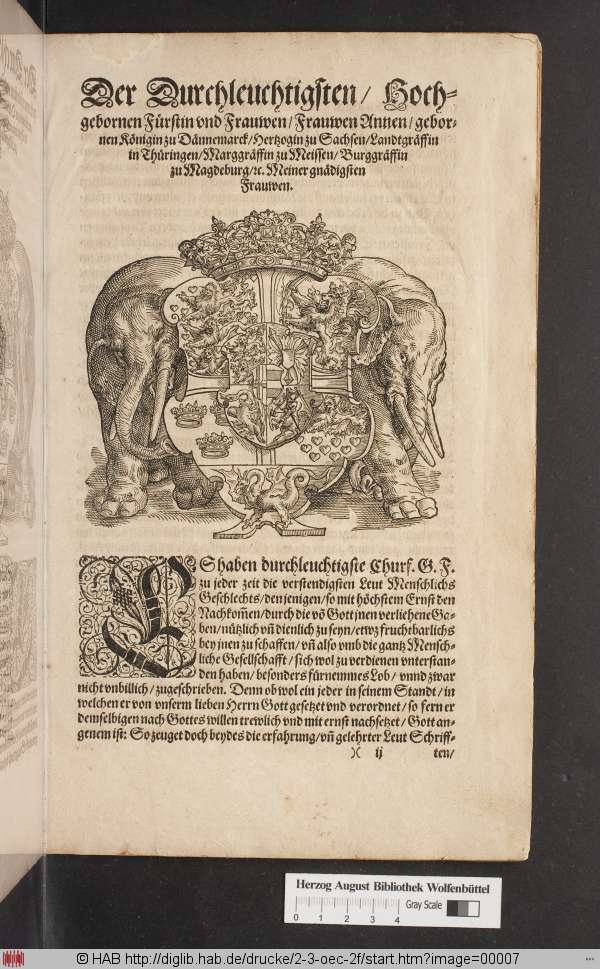 Der Durchleuchtigsten / Hoch-
gebornen Fürstin vnd Frauwen / Frauwen Annen / gebor-
nen Königin zu Dännemarck / Hertzogin zu Sachsen / Landtgräffin
in Thüringen / Marggräffin zu Meissen / Burggräffin
zu Magdeburg / ꝛc. Meiner gnädigsten
Frauwen.
ES haben durchleuchtigste Churf. G. F.
zu jeder zeit die verstendigsten Leut Menschlichs
Geschlechts / den jenigen / so mit höchstem Ernst den
Nachkom̃en / durch die võ Gott jnen verliehene Ga-
ben / nützlich vñ dienlich zu seyn / etwz fruchtbarlichs
bey jnen zu schaffen / vñ also vmb die gantz Mensch-
liche Gesellschafft / sich wol zu verdienen vnterstan-
den haben / besonders fürnemmes Lob / vnnd zwar
nicht vnbillich / zugeschrieben. Denn ob wol ein jeder in seinem Standt / in
welchen er von vnserm lieben Herrn Gott gesetzet vnd verordnet / so fern er
demselbigen nach Gottes willen trewlich vnd mit ernst nachsetzet / Gott an-
genem ist: So zeuget doch beydes die erfahrung / vñ gelehrter Leut Schriff-
)( ij ten /
Herzog August Bibliothek Wolfenbüttel
0 1 2 3 4 Gray Scale
© HAB http://diglib.hab.de/drucke/2-3-oec-2f/start.htm?image=00007